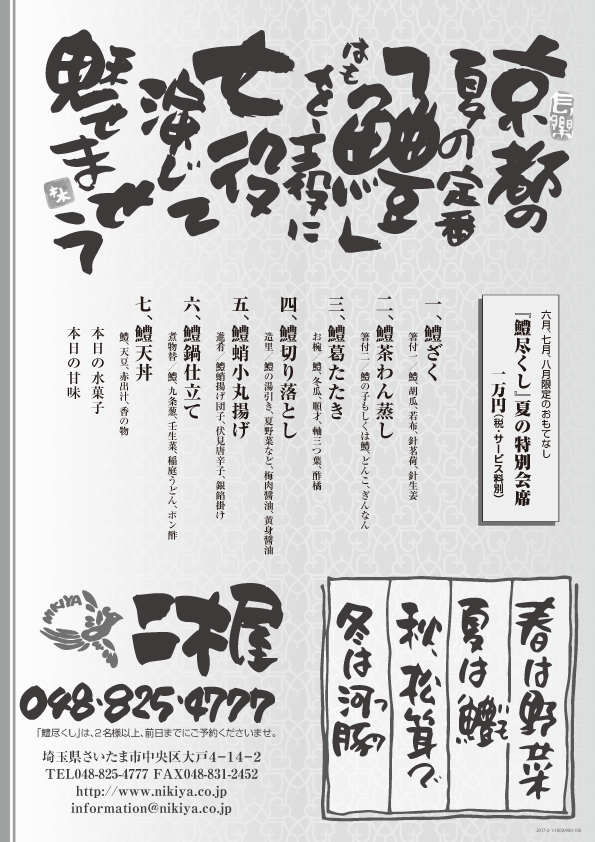 京都の
夏の定番
「鱧」
はも
を主役に
七役
演じて
魅せませう
六月、七月、八月限定のおもてなし
『鱧尽くし』夏の特別会席
一万円（税・サービス料別）
一、鱧ざく
箸付一／鱧、胡瓜、若布、針茗荷、針生姜
二、鱧茶わん蒸し
箸付二／鱧の子もしくは鱧、どんこ、ぎんなん
三、鱧葛たたき
お椀／鱧、冬瓜、順才、軸三つ葉、酢橘
四、鱧切り落とし
造里／鱧の湯引き、夏野菜など、梅肉醤油、黄身醤油
五、鱧蛸小丸揚げ
進肴／鱧蛸揚げ団子、伏見唐辛子、銀餡掛け
六、鱧鍋仕立て
煮物替／鱧、九条葱、壬生菜、稲庭うどん、ポン酢
七、鱧天丼
鱧、天豆、赤出汁、香の物
本日の水菓子
本日の甘味
春は野菜
夏は鱧
はも
秋、松茸で
冬は河豚
NIKIYA
二木屋
048・825・4777
「鱧尽くし」は、2名様以上、前日までにご予約くださいませ。
埼玉県さいたま市中央区大戸4－14－2
TEL048-825-4777 FAX048-831-2452
http://www.nikiya.co.jp
information@nikiya.co.jp